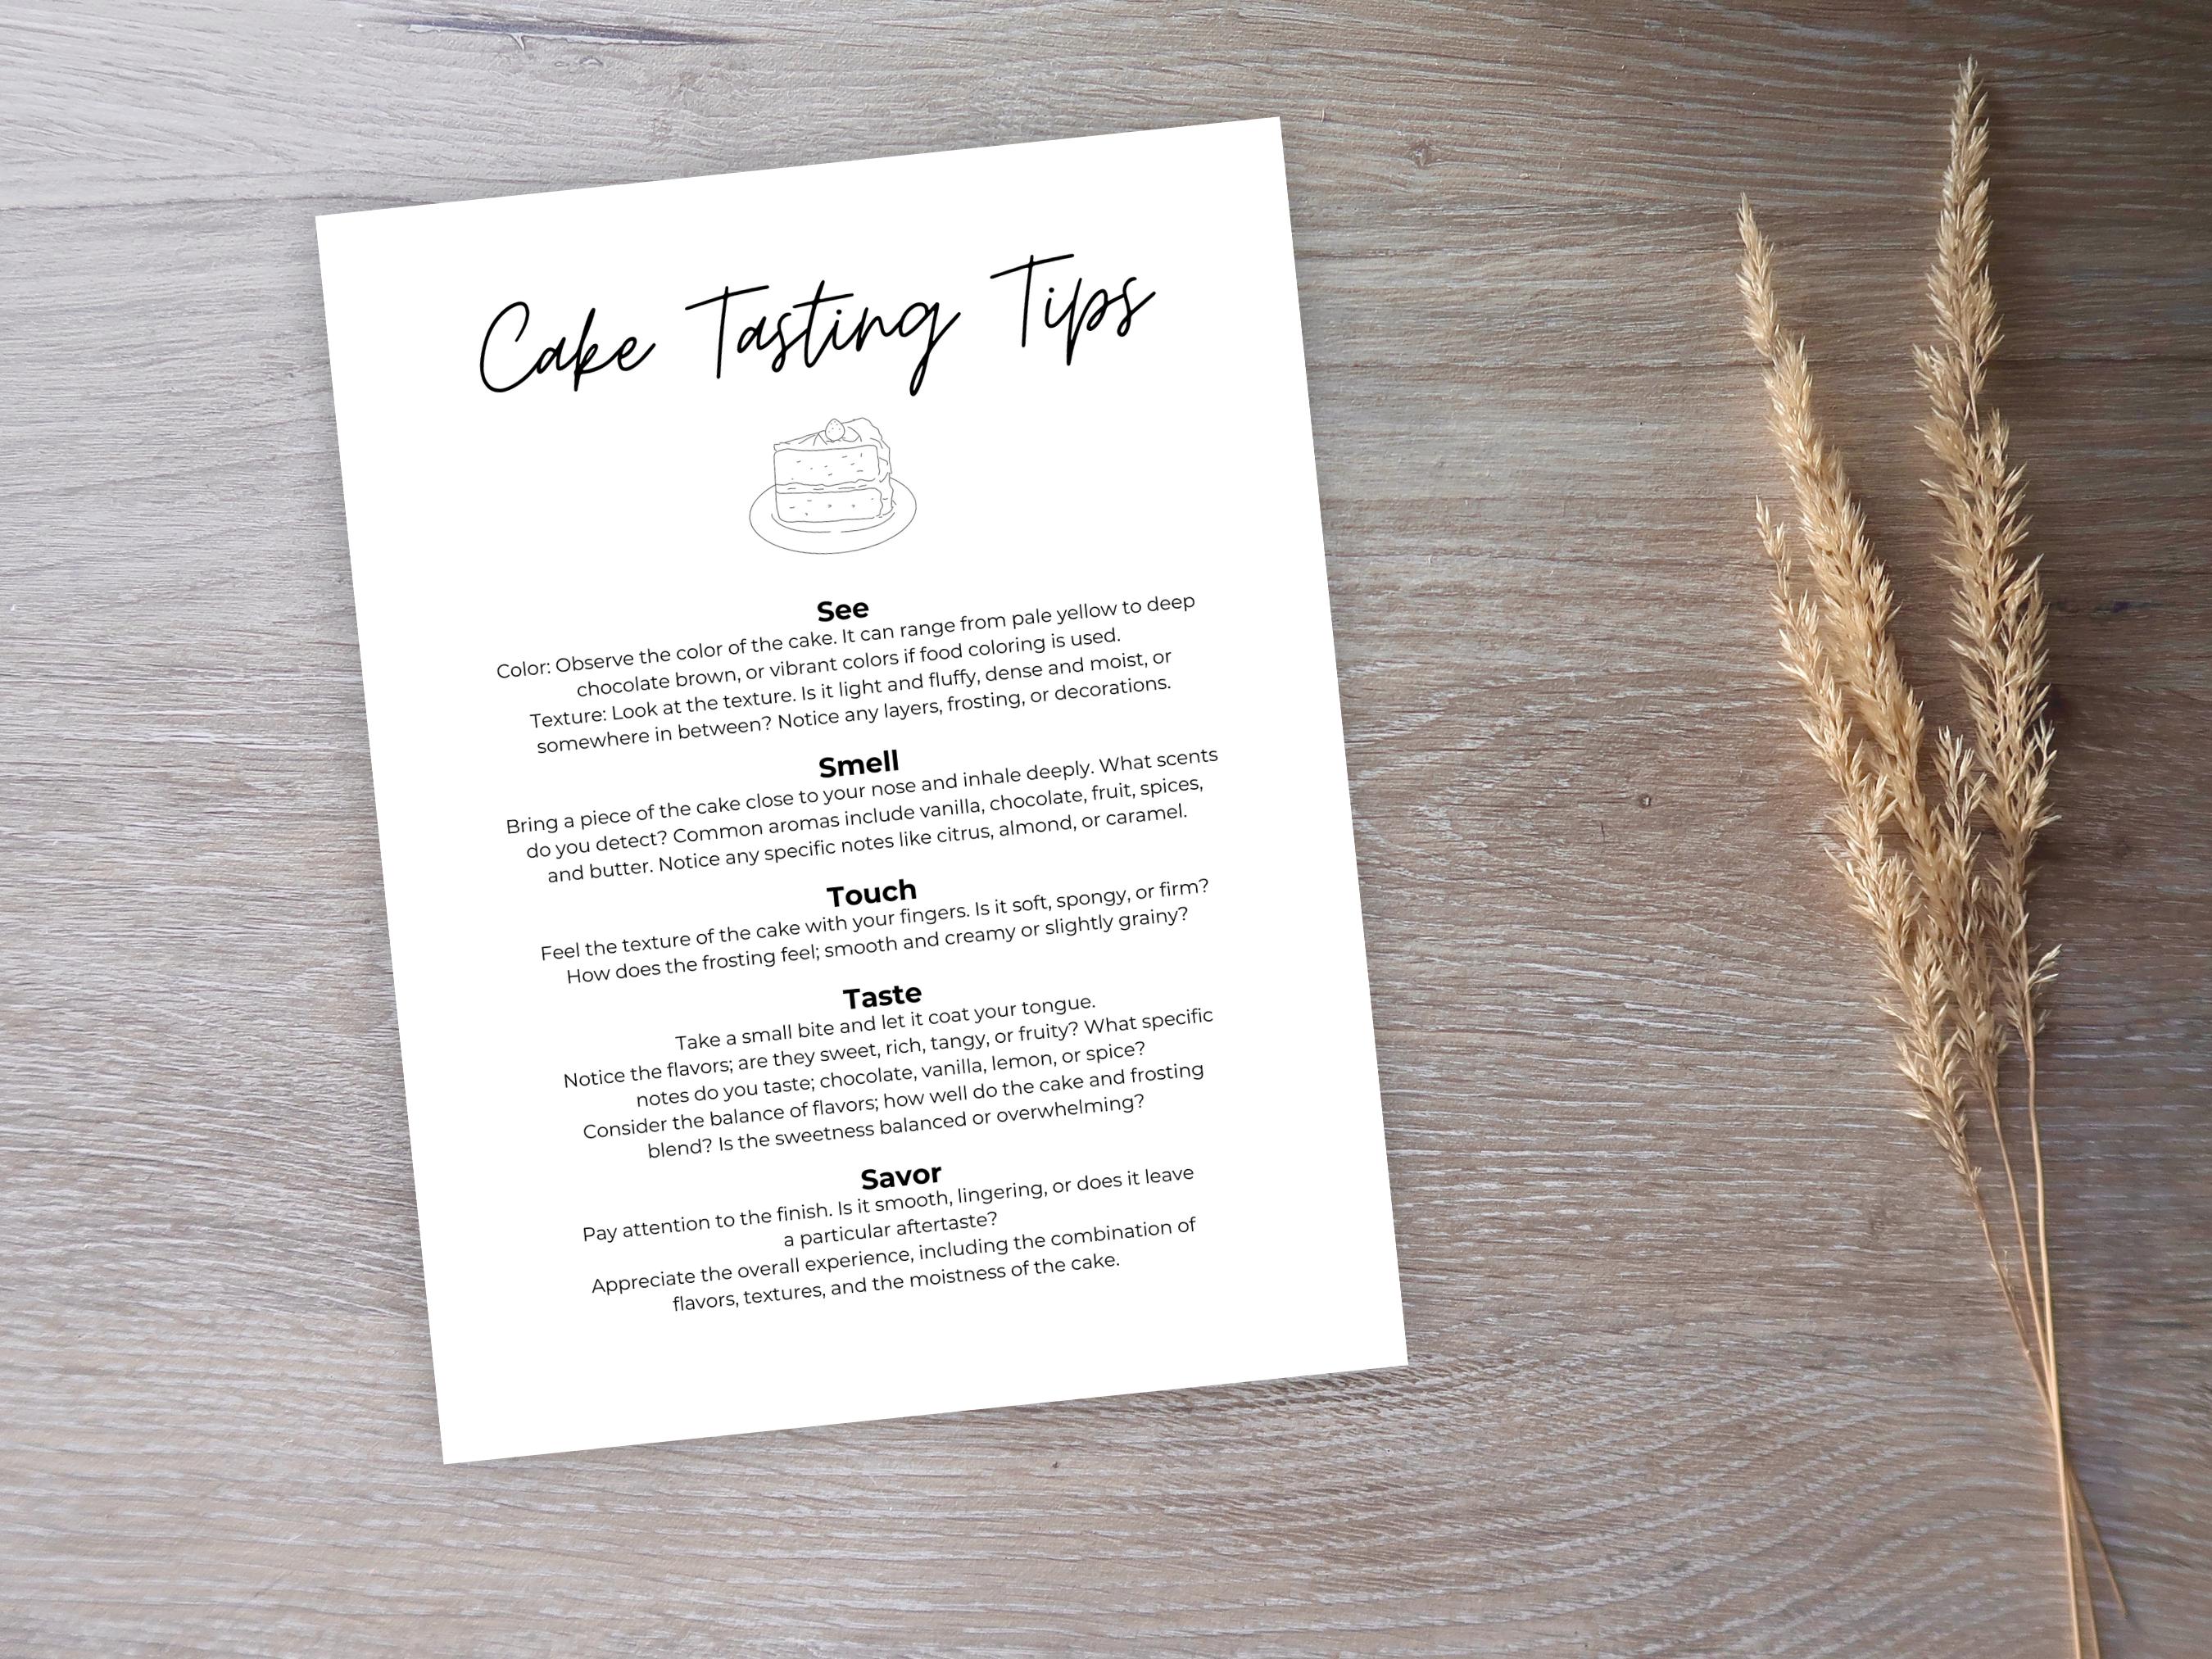 Cake Tasting Tips
See
Color: Observe the color of the cake. It can range from pale yellow to deep
chocolate brown, or vibrant colors if food coloring is used.
Texture: Look at the texture. Is it light and fluffy, dense and moist, or
somewhere in between? Notice any layers, frosting, or decorations.
Smell
Bring a piece of the cake close to your nose and inhale deeply. What scents
do you detect? Common aromas include vanilla, chocolate, fruit, spices,
and butter. Notice any specific notes like citrus, almond, or caramel.
Touch
Feel the texture of the cake with your fingers. Is it soft, spongy, or firm?
How does the frosting feel; smooth and creamy or slightly grainy?
Taste
Take a small bite and let it coat your tongue.
Notice the flavors; are they sweet, rich, tangy, or fruity? What specific
notes do you taste; chocolate, vanilla, lemon, or spice?
Consider the balance of flavors; how well do the cake and frosting
blend? Is the sweetness balanced or overwhelming?
Savor
Pay attention to the finish. Is it smooth, lingering, or does it leave
a particular aftertaste?
Appreciate the overall experience, including the combination of
flavors, textures, and the moistness of the cake.